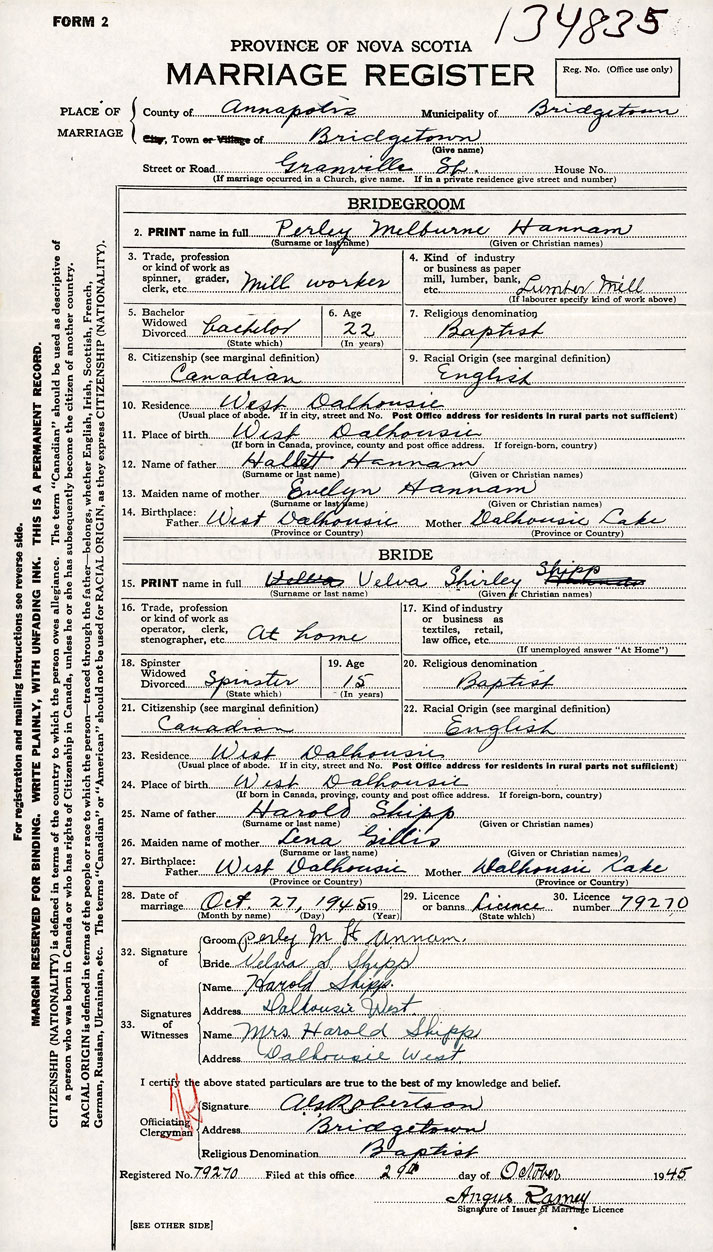 FORM 2
134835
PROVINCE OF NOVA SCOTIA
MARRIAGE REGISTER
Reg. No. (Office use only)
PLACE OF MARRIAGE
County of Annapolis Municipality of Bridgetown
City, Town or Village of Bridgetown
(Give name)
Street or Road Granville St. House No.
(If marriage occurred in a Church, give name. If in a private residence give street and number)
BRIDEGROOM
2. PRINT name in full Perley Melburne Hannam
(Surname or last name) (Given or Christian names)
3. Trade, profession or kind of work as spinner, grader, clerk, etc. Mill worker
4. Kind of industry or business as paper mill, lumber, bank, etc. Lumber Mill
(If labourer specify kind of work above)
5. Bachelor Widowed Divorced bachelor
(State which)
6. Age 22
(In years)
7. Religious denomination
Baptist
8. Citizenship (see marginal definition)
Canadian
9. Racial Origin (see marginal definition)
English
10. Residence West Dalhousie
(Usual place of abode. If in city, street and No. Post Office address for residents in rural parts not sufficient)
11. Place of birth West Dalhousie
(If born in Canada, province, county and post office address. If foreign-born, country)
12. Name of father Hallett Hannam
(Surname or last name) (Given or Christian names)
13. Maiden name of mother Evelyn Hannam
(Surname or last name) (Given or Christian names)
14. Birthplace: Father West Dalhousie Mother Dalhousie Lake
(Province or Country) (Province or Country)
BRIDE
15. PRINT name in full Velva Shirley Shipp
(Surname or last name) (Given or Christian names)
16. Trade, profession or kind of work as operator, clerk, stenographer, etc. At home
17. Kind of industry or business as textiles, retail, law office, etc.
(If unemployed answer "At Home")
18. Spinster Widowed Divorced Spinster
(State which)
19. Age 15
(In years)
20. Religious denomination
Baptist
21. Citizenship (see marginal definition)
Canadian
22. Racial Origin (see marginal definition)
English
23. Residence West Dalhousie
(Usual place of abode. If in city, street and No. Post Office address for residents in rural parts not sufficient)
24. Place of birth West Dalhousie
(If born in Canada, province, county and post office address. If foreign-born, country)
25. Name of father Harold Shipp
(Surname or last name) (Given or Christian names)
26. Maiden name of mother Lena Gillis
(Surname or last name) (Given or Christian names)
27. Birthplace: Father West Dalhousie Mother Dalhousie Lake
(Province or Country) (Province or Country)
28. Date of marriage Oct. 27, 1945 19
(Month by name) (Day) (Year)
29. Licence or banns Licence
(State which)
30. Licence number 79270
32. Signature of
Groom Perly M Hannam.
Bride Velva S Shipp
33. Signatures of Witnesses
Name Harold Shipp.
Address Dalhousie West.
Name Mrs Harold Shipp
Address Dalhousie West
I certify the above stated particulars are true to the best of my knowledge and belief.
Officiating Clergyman
Signature Robertson
Address Bridgetown
Religious Denomination Baptist
Registered No. 79270 Filed at this office 29th day of October 1945
Angus Ramey
Signature of Issuer of Marriage Licence
[SEE OTHER SIDE]
For registration and mailing instructions see reverse side.
MARGIN RESERVED FOR BINDING. WRITE PLAINLY, WITH UNFADING INK. THIS IS A PERMANENT RECORD.
CITIZENSHIP (NATIONALITY) is defined in terms of the country to which the person owes allegiance. The term "Canadian" should be used as descriptive of
a person who was born in Canada or who has rights of Citizenship in Canada, unless he or she has subsequently become the citizen of another country.
RACIAL ORIGIN is defined in terms of the people or race to which the person—traced through the father—belongs, whether English, Irish, Scottish, French,
German, Russian, Ukrainian, etc. The terms "Canadian" or "American" should not be used for RACIAL ORIGIN, as they express CITIZENSHIP (NATIONALITY).